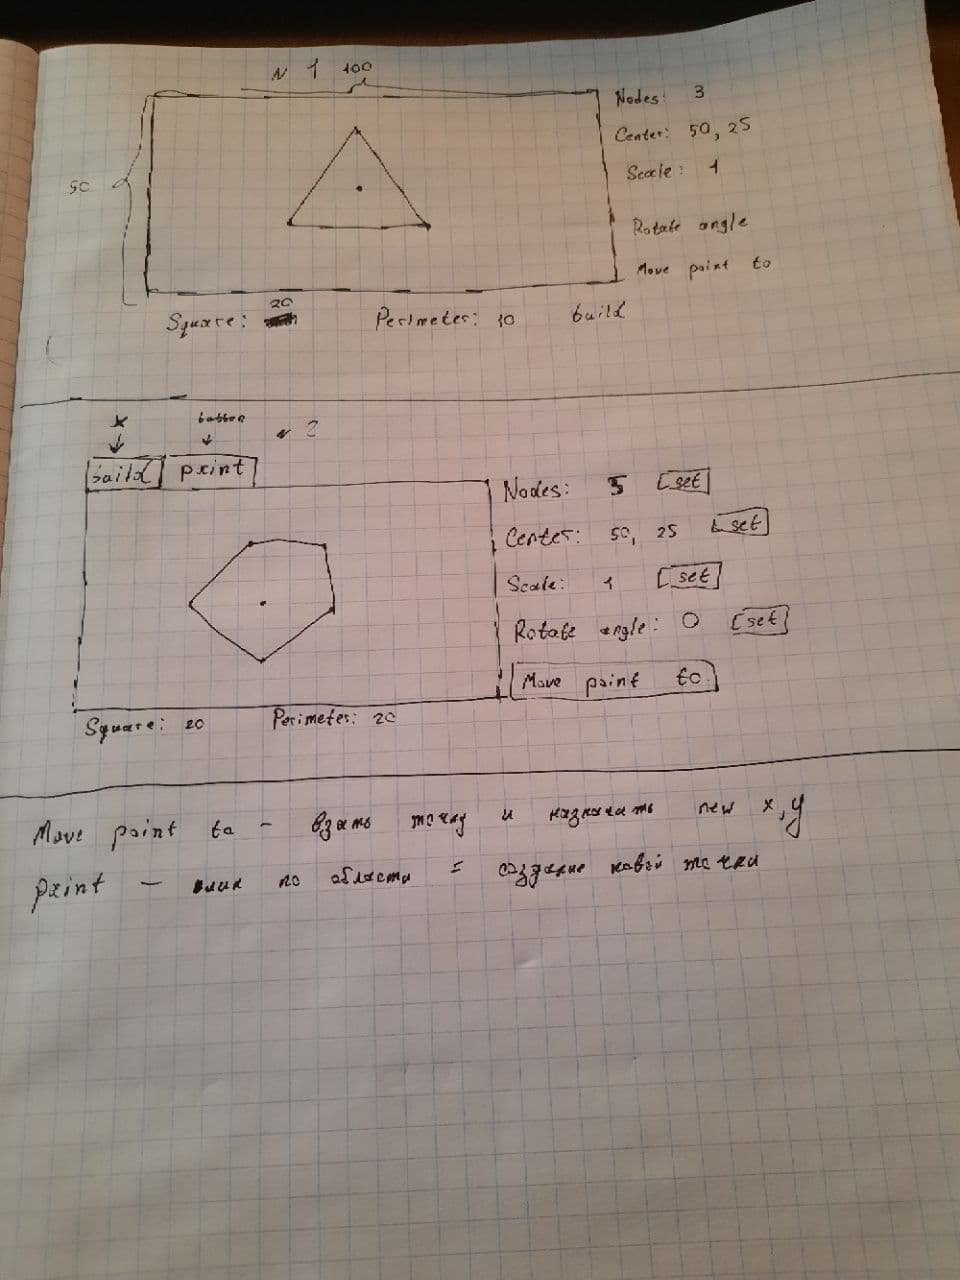 N 1 100
Nodes: 3
Center: 50, 25
50
Scale: 1
Rotate angle
Move point to
20
Square: Perimeter: 10 build
button
N 2
build print
Nodes: 5 set
Center: 50, 25 set
Scale: 1 set
Rotate angle: 0 set
Move point to
Square: 20 Perimeter: 20
Move point to - взять точку и назначить new x,y
print - клик по области = создание новой точки